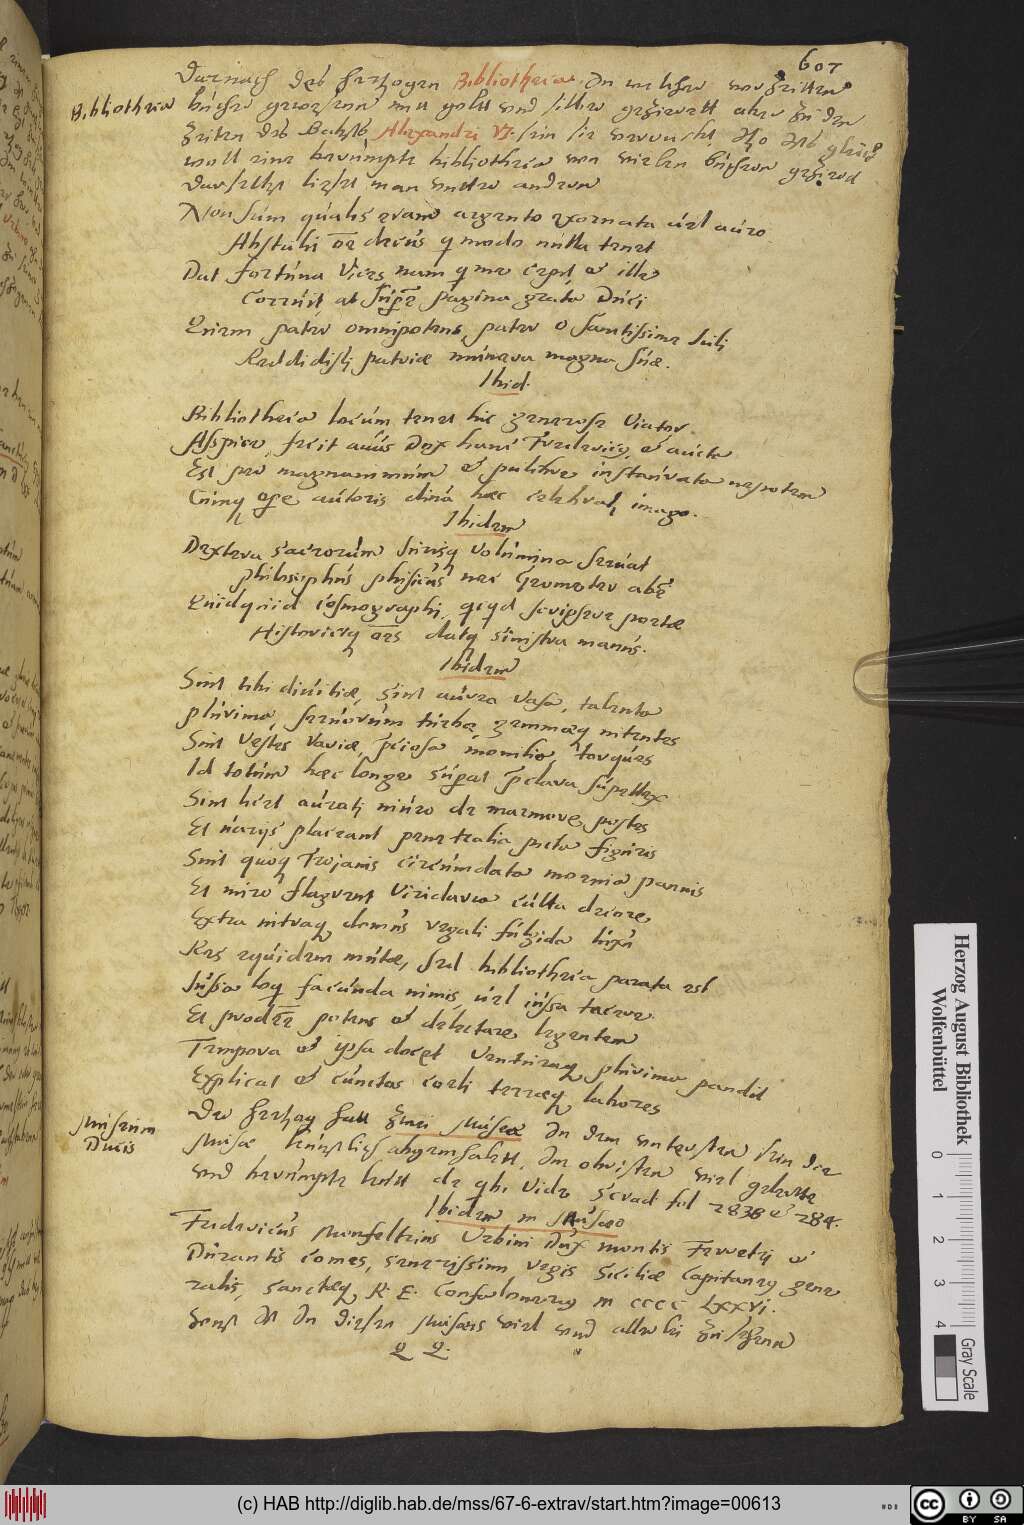 607
Darnach des hertzogen Bibliotheca. In welcher vorzeitten
Bibliotheca bücher gewesenn mitt goltt und silber gezierett aber zu den
zeiten des Babsts Alexandri VI. sein sie
woll eine berümpte bibliotheca von vielen büchern gezierd
Daselbst liesel man unter andern
Non sum qualis eram argento exornata vel auro
Abstulit oe decus q modo nulla tenet
Dat fortuna vices nam q me cepit et ille
Corruit at supe pagina grata Duci
Quem pater omnipotens, pater o sanctissime Juli
Reddidisti patriae munera magna suae.
Ibid.
Bibliotheca locum tenet hic generose Viator.
Aspice, fecit avus Dux hanc Frederic, et aucta
Est per magnanimum et pulchre instaurata nepotem
Cuius opе autoris clina haec celebrat imago.
Ibidem
Dextera sacrorum iurisq volumina servat
philosophus phisicus nec Geometer abest
Quidquid cosmographi, qcqd scripsere poetae
Historiciq oes datq sinistra manus.
Ibidem
Sint tibi divitiae, sint aurea vasa, talenta
plurima, servorum turbae, gemmaeq nitentes
Sint vestes variae, pciosa monilia, torques
Id totum haec longe supat pclara supellex
Sint licet aurati niveo de marmore postes
Et variis placeant penetralia picta figuris
Sint quoq Trojanis circumdata moenia pannis
Et miro flagrent viridaria culta decore,
Extra intraq domus regali fulgida luxu
Res equidem mutae, sed bibliotheca parata est
Iussa loq facunda nimis, vel iussa tacere
Et prodesse potens et delectare legentem
Tempora et ipsa docet venturaq plurima pandit
Explicat et cunctos coeli terraeq labores
Musaeum Ducis
Der hertzog hatt zwei Musea In dem untersten sein die
Musae künstlich abgemahlett, Im obristen viel gelertte
und berümpte leutt de qbi vide Scrad fol 283b et 284.
Ibidem in Musaeo
Fridericus Monfeltrius Urbini Dux montis Feretrij et
Durantis comes, serenissimi regis Siciliae Capitaneq gene
ralis, sanctaeq R. E. Confaloneriq M CCCC LXXVI.
Sonst ist In diesen Musaeis viel und allerlei zu sehenn
Herzog August Bibliothek
Wolfenbüttel
0
1
2
3
4
Gray Scale
(c) HAB http://diglib.hab.de/mss/67-6-extrav/start.htm?image=00613
cc
BY
SA